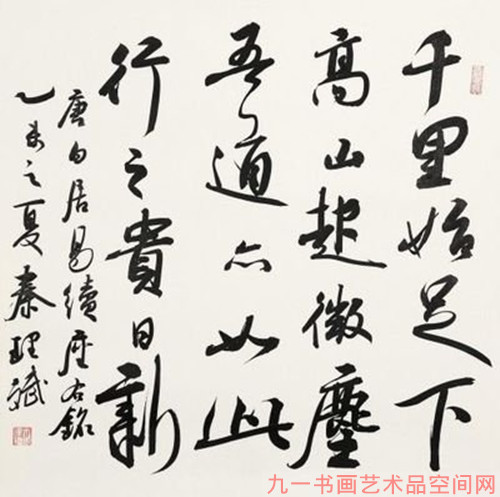 千里始足下
高山起微塵
吾道亦如此
行之貴日新
唐白居易續座右銘
乙未之夏秦理斌
九一书画艺术品空间网